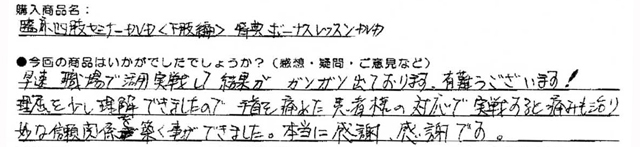 購入商品名：
臨床四肢セミナーDVD＜下肢編＞ 特典ボーナスレッスンDVD
●今回の商品はいかがでしたでしょうか？（感想・疑問・ご意見など）
早速 職場で活用実戦して 結果が ガンガン出ております。有難うございます！
理屈を少し理解できましたので 手首を痛めた患者様の対応で実戦すると痛みも治り
め な信頼関係を築く事ができました。本当に感謝、感謝です。